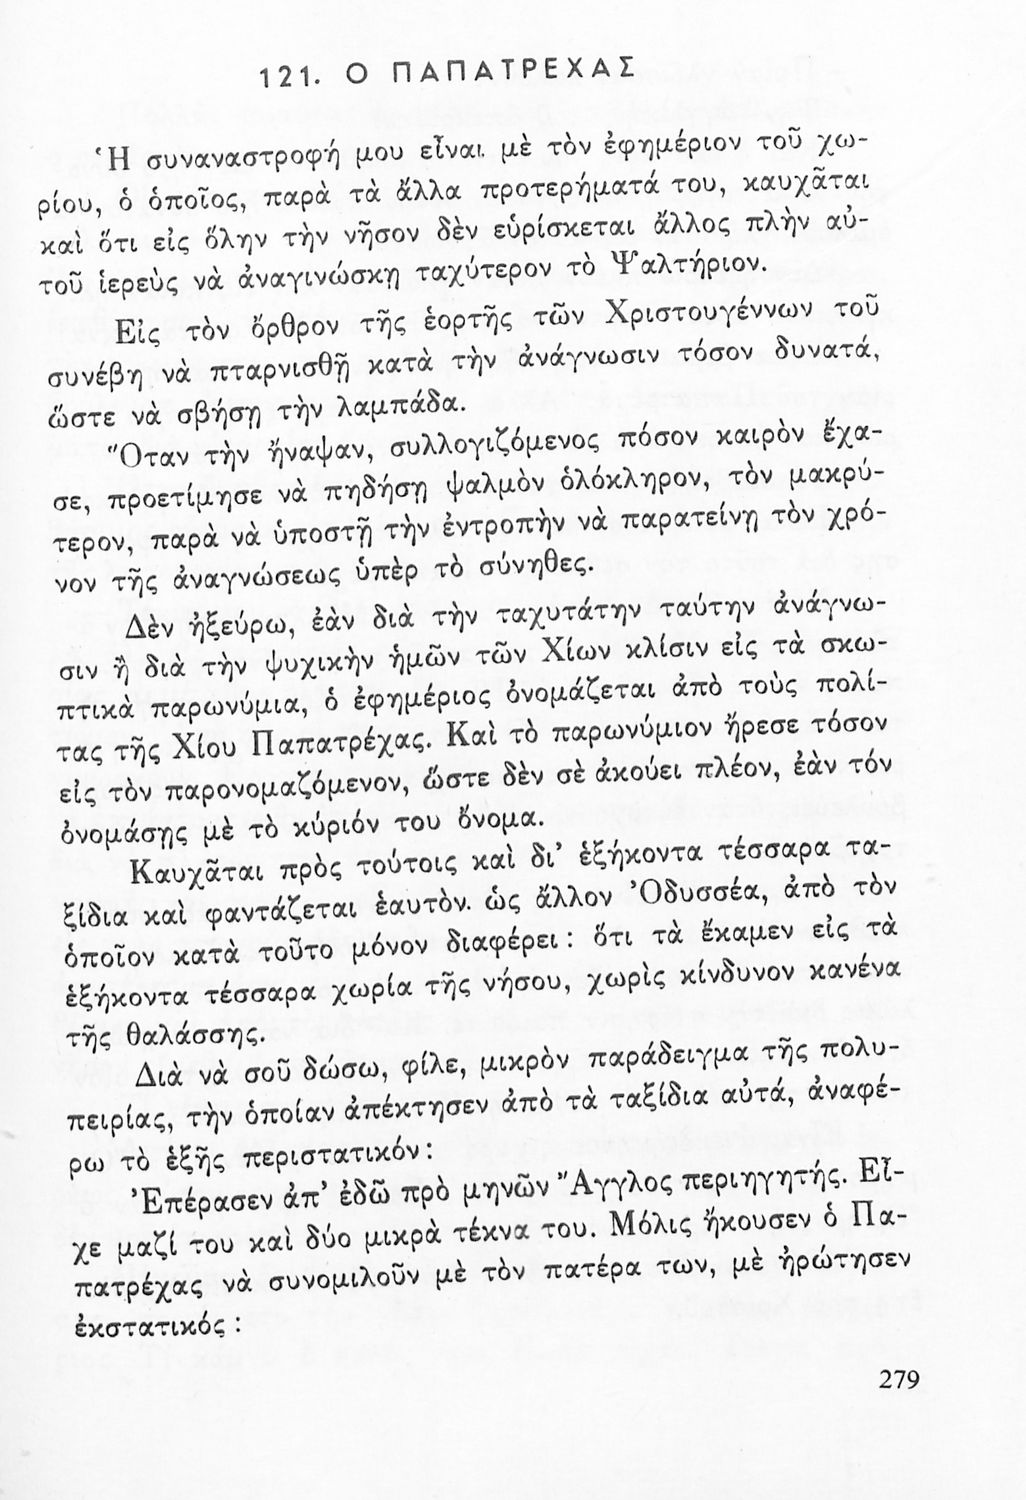 121. Ο ΠΑΠΑΤΡΕΧΑΣ
Ἡ συναναστροφή μου εἶναι μὲ τὸν ἐφημέριον τοῦ χω-
ρίου, ὁ ὁποῖος, παρὰ τὰ ἄλλα προτερήματά του, καυχᾶται
καὶ ὅτι εἰς ὅλην τὴν νῆσον δὲν εὑρίσκεται ἄλλος πλὴν αὐ-
τοῦ ἱερεὺς νὰ ἀναγινώσκῃ ταχύτερον τὸ Ψαλτήριον.
Εἰς τὸν ὄρθρον τῆς ἑορτῆς τῶν Χριστουγέννων τοῦ
συνέβη νὰ πταρνισθῇ κατὰ τὴν ἀνάγνωσιν τόσον δυνατά,
ὥστε νὰ σβήσῃ τὴν λαμπάδα.
Ὅταν τὴν ἤναψαν, συλλογιζόμενος πόσον καιρὸν ἔχα-
σε, προετίμησε νὰ πηδήσῃ ψαλμὸν ὁλόκληρον, τὸν μακρύ-
τερον, παρὰ νὰ ὑποστῇ τὴν ἐντροπὴν νὰ παρατείνῃ τὸν χρό-
νον τῆς ἀναγνώσεως ὑπὲρ τὸ σύνηθες.
Δὲν ἠξεύρω, ἐὰν διὰ τὴν ταχυτάτην ταύτην ἀνάγνω-
σιν ἢ διὰ τὴν ψυχικὴν ἡμῶν τῶν Χίων κλίσιν εἰς τὰ σκω-
πτικὰ παρωνύμια, ὁ ἐφημέριος ὀνομάζεται ἀπὸ τοὺς πολί-
τας τῆς Χίου Παπατρέχας. Καὶ τὸ παρωνύμιον ἤρεσε τόσον
εἰς τὸν παρονομαζόμενον, ὥστε δὲν σὲ ἀκούει πλέον, ἐὰν τόν
ὀνομάσῃς μὲ τὸ κύριόν του ὄνομα.
Καυχᾶται πρὸς τούτοις καὶ δι' ἑξήκοντα τέσσαρα τα-
ξίδια καὶ φαντάζεται ἑαυτὸν. ὡς ἄλλον Ὀδυσσέα, ἀπὸ τὸν
ὁποῖον κατὰ τοῦτο μόνον διαφέρει: ὅτι τὰ ἔκαμεν εἰς τὰ
ἑξήκοντα τέσσαρα χωρία τῆς νήσου, χωρὶς κίνδυνον κανένα
τῆς θαλάσσης.
Διὰ νὰ σοῦ δώσω, φίλε, μικρὸν παράδειγμα τῆς πολυ-
πειρίας, τὴν ὁποίαν ἀπέκτησεν ἀπὸ τὰ ταξίδια αὐτά, ἀναφέ-
ρω τὸ ἑξῆς περιστατικόν:
Ἐπέρασεν ἀπ' ἐδῶ πρὸ μηνῶν Ἄγγλος περιηγητής. Εἶ-
χε μαζί του καὶ δύο μικρὰ τέκνα του. Μόλις ἤκουσεν ὁ Πα-
πατρέχας νὰ συνομιλοῦν μὲ τὸν πατέρα των, μὲ ἠρώτησεν
ἐκστατικός:
279